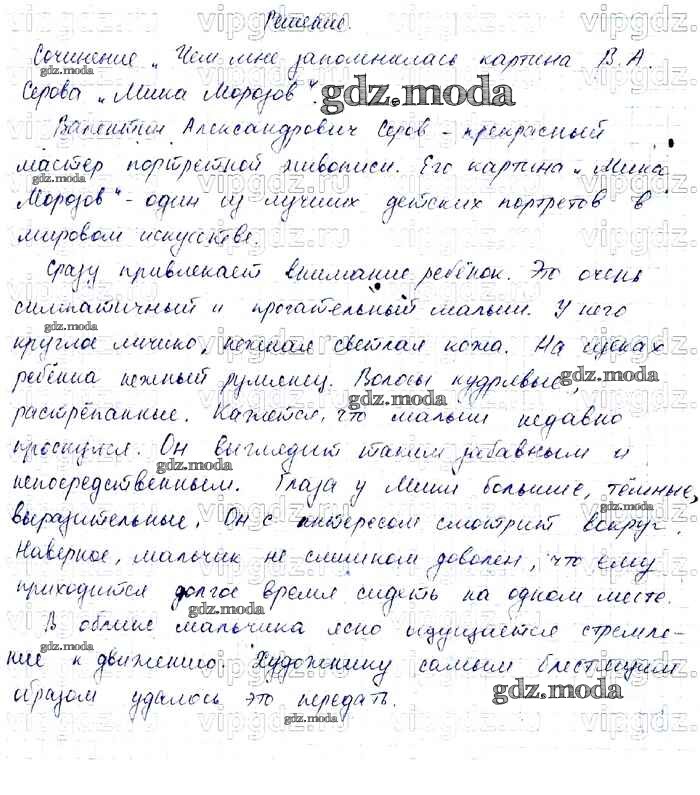 Решение.
Сочинение „Чем мне запомнилась картина В. А.
Серова „Мика Морозов".
Валентин Александрович Серов - прекрасный
мастер портретной живописи. Его картина „Мика
Морозов" - один из лучших детских портретов в
мировом искусстве.
Сразу привлекает внимание ребёнок. Это очень
симпатичный и трогательный малыш. У него
круглое личико, нежная светлая кожа. На щеках
ребёнка нежный румянец. Волосы кудрявые,
растрёпанные. Кажется, что малыш недавно
проснулся. Он выглядит таким забавным и
непосредственным. Глаза у Мики большие, тёмные,
выразительные. Он с интересом смотрит вокруг.
Наверное, мальчик не слишком доволен, что ему
приходится долгое время сидеть на одном месте.
В облике мальчика ясно ощущается стремле-
ние к движению. Художнику самым блестящим
образом удалось это передать.
gdz.moda
vipgdz.ru